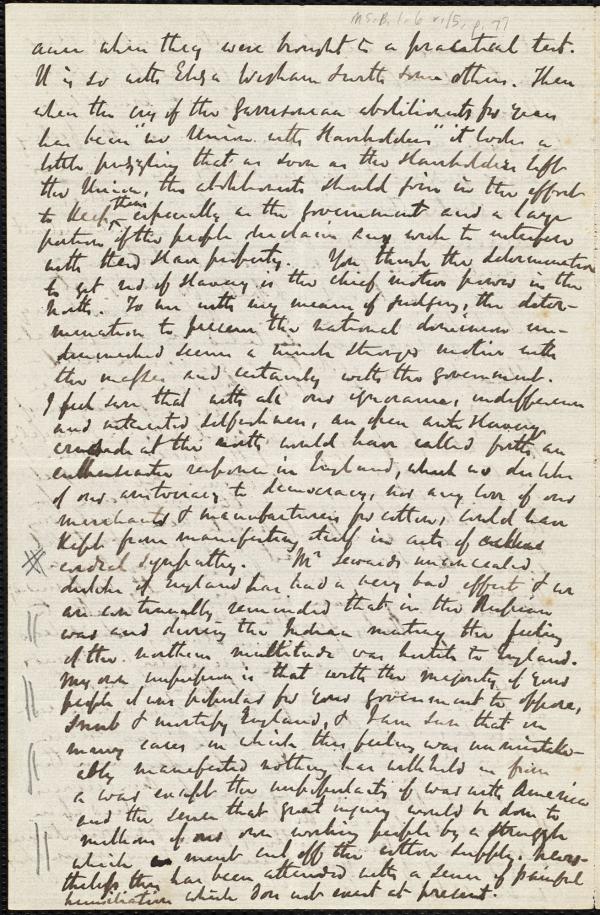 MS.B.1.6 v.15, p.77
when they were brought to a practical test.
It is so with Eliza Wigham & with some others. Then
when the cry of the Garrisonian abolitionists for years
has been "no Union with Slaveholders" it looks a
little puzzling that as soon as the Slaveholders left
the Union, the abolitionists should join in the effort
to keep them, especially as the government and a large
portion of the people disclaim any wish to interfere
with their Slave property. You think the determination
to get rid of Slavery is the chief motive power in the
North. To me with my means of judging, the deter-
mination to preserve the national dominion un-
diminished seems a much stronger motive with
the masses and certainly with the government.
I feel sure that with all our ignorance, indifference
and interested selfishness, an open anti slavery
crusade at the north would have called forth an
enthusiastic response in England, which no dislike
of our aristocracy to democracy, nor any love of our
merchants & manufacturers for cotton, could have
kept from manifesting itself in acts of
cordial sympathy. Mr Sewards unconcealed
dislike of England has had a very bad effect & we
are continually reminded that in the Russian
war and during the Indian mutiny the feeling
of the northern multitude was hostile to England.
My own impression is that with the majority of your
people it was popular for your government to oppose,
insult & mortify England, & I am sure that in
many cases in which this feeling was unmistake-
ably manifested nothing has withheld us from
a war except the unpopularity of war with America
and the sense that great injury would be done to
millions of our own working people by a struggle
which must cut off the cotton supply. Never-
theless this has been attended with a sense of painful
humiliation which does not exist at present.